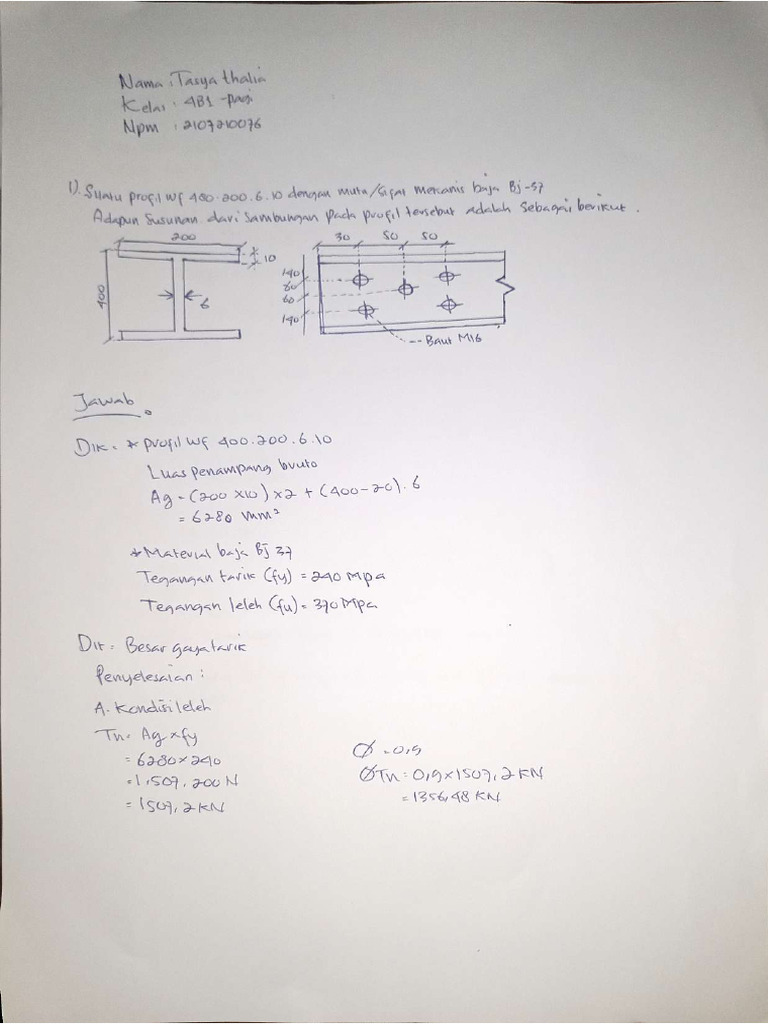 Nama : Tasya thalia
Kelas : 4B1 -pagi
Npm : 2107210076
1). Suatu profil WF 400.200.6.10 dengan mutu/sifat mekanis baja Bj-37
Adapun susunan dari sambungan pada profil tersebut adalah sebagai berikut.
200
10
400
6
30 50 50
140
60
60
140
Baut M16
Jawab
Dik = * profil WF 400.200.6.10
Luas penampang bruto
Ag = (200 x10) x2 + (400-20).6
= 6280 mm²
* Material baja Bj 37
Tegangan tarik (fy) = 240 Mpa
Tegangan leleh (fu) = 370 Mpa
Dit = Besar gaya tarik
Penyelesaian :
A. Kondisi leleh
Tn = Ag x fy
= 6280 x 240
= 1.507.200 N
= 1507,2 KN
Ø = 0,9
ØTn = 0,9 x 1507,2 KN
= 1356,48 KN